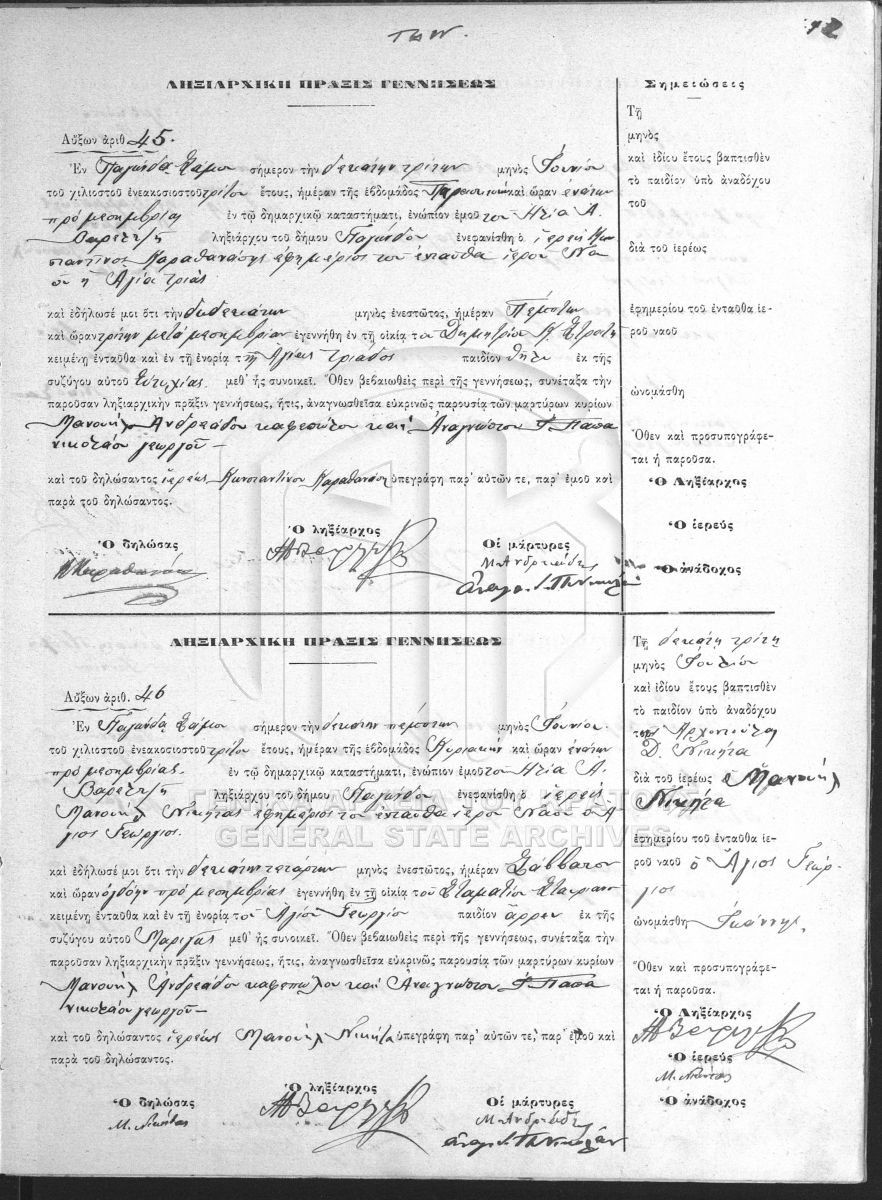 12
ΛΗΞΙΑΡΧΙΚΗ ΠΡΑΞΙΣ ΓΕΝΝΗΣΕΩΣ
Αὔξων ἀριθ. 45.
Ἐν Παγώνδα Σάμου σήμερον τὴν δεκάτην τρίτην μηνὸς Ἰουνίου
τοῦ χιλιοστοῦ ἐνεακοσιοστοῦ τρίτου ἔτους, ἡμέραν τῆς ἑβδομάδος Παρασκευὴν καὶ ὥραν ἐνάτην
πρὸ μεσημβρίας ἐν τῷ δημαρχικῷ καταστήματι, ἐνώπιον ἐμοῦ τοῦ Ἠλία Α.
Βαρετζῆ ληξιάρχου τοῦ δήμου Παγώνδου ἐνεφανίσθη ὁ ἱερεὺς Κων
σταντῖνος Καραθανάσης ἐφημέριος τοῦ ἐνταῦθα ἱεροῦ Να
οῦ ἡ Ἁγία τριάς
καὶ ἐδήλωσέ μοι ὅτι τὴν δωδεκάτην μηνὸς ἐνεστῶτος, ἡμέραν Πέμπτην
καὶ ὥραν τρίτην μετὰ μεσημβρίαν ἐγεννήθη ἐν τῇ οἰκίᾳ τοῦ Δημητρίου Κ.
κειμένῃ ἐνταῦθα καὶ ἐν τῇ ἐνορίᾳ τῆς Ἁγίας τριάδος παιδίον θῆλυ ἐκ τῆς
συζύγου αὐτοῦ Εὐτυχίας μεθ᾽ ἧς συνοικεῖ. Ὅθεν βεβαιωθεὶς περὶ τῆς γεννήσεως, συνέταξα τὴν
παροῦσαν ληξιαρχικὴν πρᾶξιν γεννήσεως, ἥτις, ἀναγνωσθεῖσα εὐκρινῶς παρουσίᾳ τῶν μαρτύρων κυρίων
Μανουὴλ Ἀνδρεάδου καφεπώλου καὶ Ἀναγνώστου Γ. Παπα
νικολάου γεωργοῦ
καὶ τοῦ δηλώσαντος ἱερέως Κωνσταντίνου Καραθανάση ὑπεγράφη παρ᾽ αὐτῶν τε, παρ᾽ ἐμοῦ καὶ
παρὰ τοῦ δηλώσαντος.
Ὁ δηλώσας
Ὁ ληξίαρχος
Οἱ μάρτυρες
Μ. Ἀνδρεάδης
Σημειώσεις
Τῇ
μηνὸς
καὶ ἰδίου ἔτους βαπτισθὲν
τὸ παιδίον ὑπὸ ἀναδόχου
τοῦ
διὰ τοῦ ἱερέως
ἐφημερίου τοῦ ἐνταῦθα ἱε-
ροῦ ναοῦ
ὠνομάσθη
Ὅθεν καὶ προσυπογράφε-
ται ἡ παροῦσα.
Ὁ Ληξίαρχος
Ὁ ἱερεύς
Ὁ ἀνάδοχος
ΛΗΞΙΑΡΧΙΚΗ ΠΡΑΞΙΣ ΓΕΝΝΗΣΕΩΣ
Αὔξων ἀριθ. 46
Ἐν Παγώνδα Σάμου σήμερον τὴν δεκάτην πέμπτην μηνὸς Ἰουνίου
τοῦ χιλιοστοῦ ἐνεακοσιοστοῦ τρίτου ἔτους, ἡμέραν τῆς ἑβδομάδος Κυριακὴν καὶ ὥραν ἐνάτην
πρὸ μεσημβρίας ἐν τῷ δημαρχικῷ καταστήματι, ἐνώπιον ἐμοῦ τοῦ Ἠλία Α.
Βαρετζῆ ληξιάρχου τοῦ δήμου Παγώνδου ἐνεφανίσθη ὁ ἱερεὺς
Μανουὴλ Νικήτας ἐφημέριος τοῦ ἐνταῦθα ἱεροῦ Ναοῦ ὁ Ἅ
γιος Γεώργιος.
καὶ ἐδήλωσέ μοι ὅτι τὴν δεκάτην τετάρτην μηνὸς ἐνεστῶτος, ἡμέραν Σάββατον
καὶ ὥραν ὀγδόην πρὸ μεσημβρίας ἐγεννήθη ἐν τῇ οἰκίᾳ τοῦ Σταματίου
κειμένῃ ἐνταῦθα καὶ ἐν τῇ ἐνορίᾳ τοῦ Ἁγίου Γεωργίου παιδίον ἄρρεν ἐκ τῆς
συζύγου αὐτοῦ Μαριγῶς μεθ᾽ ἧς συνοικεῖ. Ὅθεν βεβαιωθεὶς περὶ τῆς γεννήσεως, συνέταξα τὴν
παροῦσαν ληξιαρχικὴν πρᾶξιν γεννήσεως, ἥτις, ἀναγνωσθεῖσα εὐκρινῶς παρουσίᾳ τῶν μαρτύρων κυρίων
Μανουὴλ Ἀνδρεάδου καφεπώλου καὶ Ἀναγνώστου Γ. Παπα
νικολάου γεωργοῦ
καὶ τοῦ δηλώσαντος ἱερέως Μανουὴλ Νικήτα ὑπεγράφη παρ᾽ αὐτῶν τε, παρ᾽ ἐμοῦ καὶ
παρὰ τοῦ δηλώσαντος.
Ὁ δηλώσας
Μ. Νικήτας
Ὁ ληξίαρχος
Οἱ μάρτυρες
Μ. Ἀνδρεάδης
Τῇ δεκάτῃ τρίτῃ
μηνὸς Ἰουλίου
καὶ ἰδίου ἔτους βαπτισθὲν
τὸ παιδίον ὑπὸ ἀναδόχου
Δ. Νικήτα
διὰ τοῦ ἱερέως Μανουὴλ
Νικήτα
ἐφημερίου τοῦ ἐνταῦθα ἱε-
ροῦ ναοῦ ὁ Ἅγιος Γεώρ
γιος
ὠνομάσθη Ἰωάννης.
Ὅθεν καὶ προσυπογράφε-
ται ἡ παροῦσα.
Ὁ Ληξίαρχος
Ὁ ἱερεύς
Μ. Νικήτας
Ὁ ἀνάδοχος
ΓΕΝΙΚΑ ΑΡΧΕΙΑ ΤΟΥ ΚΡΑΤΟΥΣ
GENERAL STATE ARCHIVES